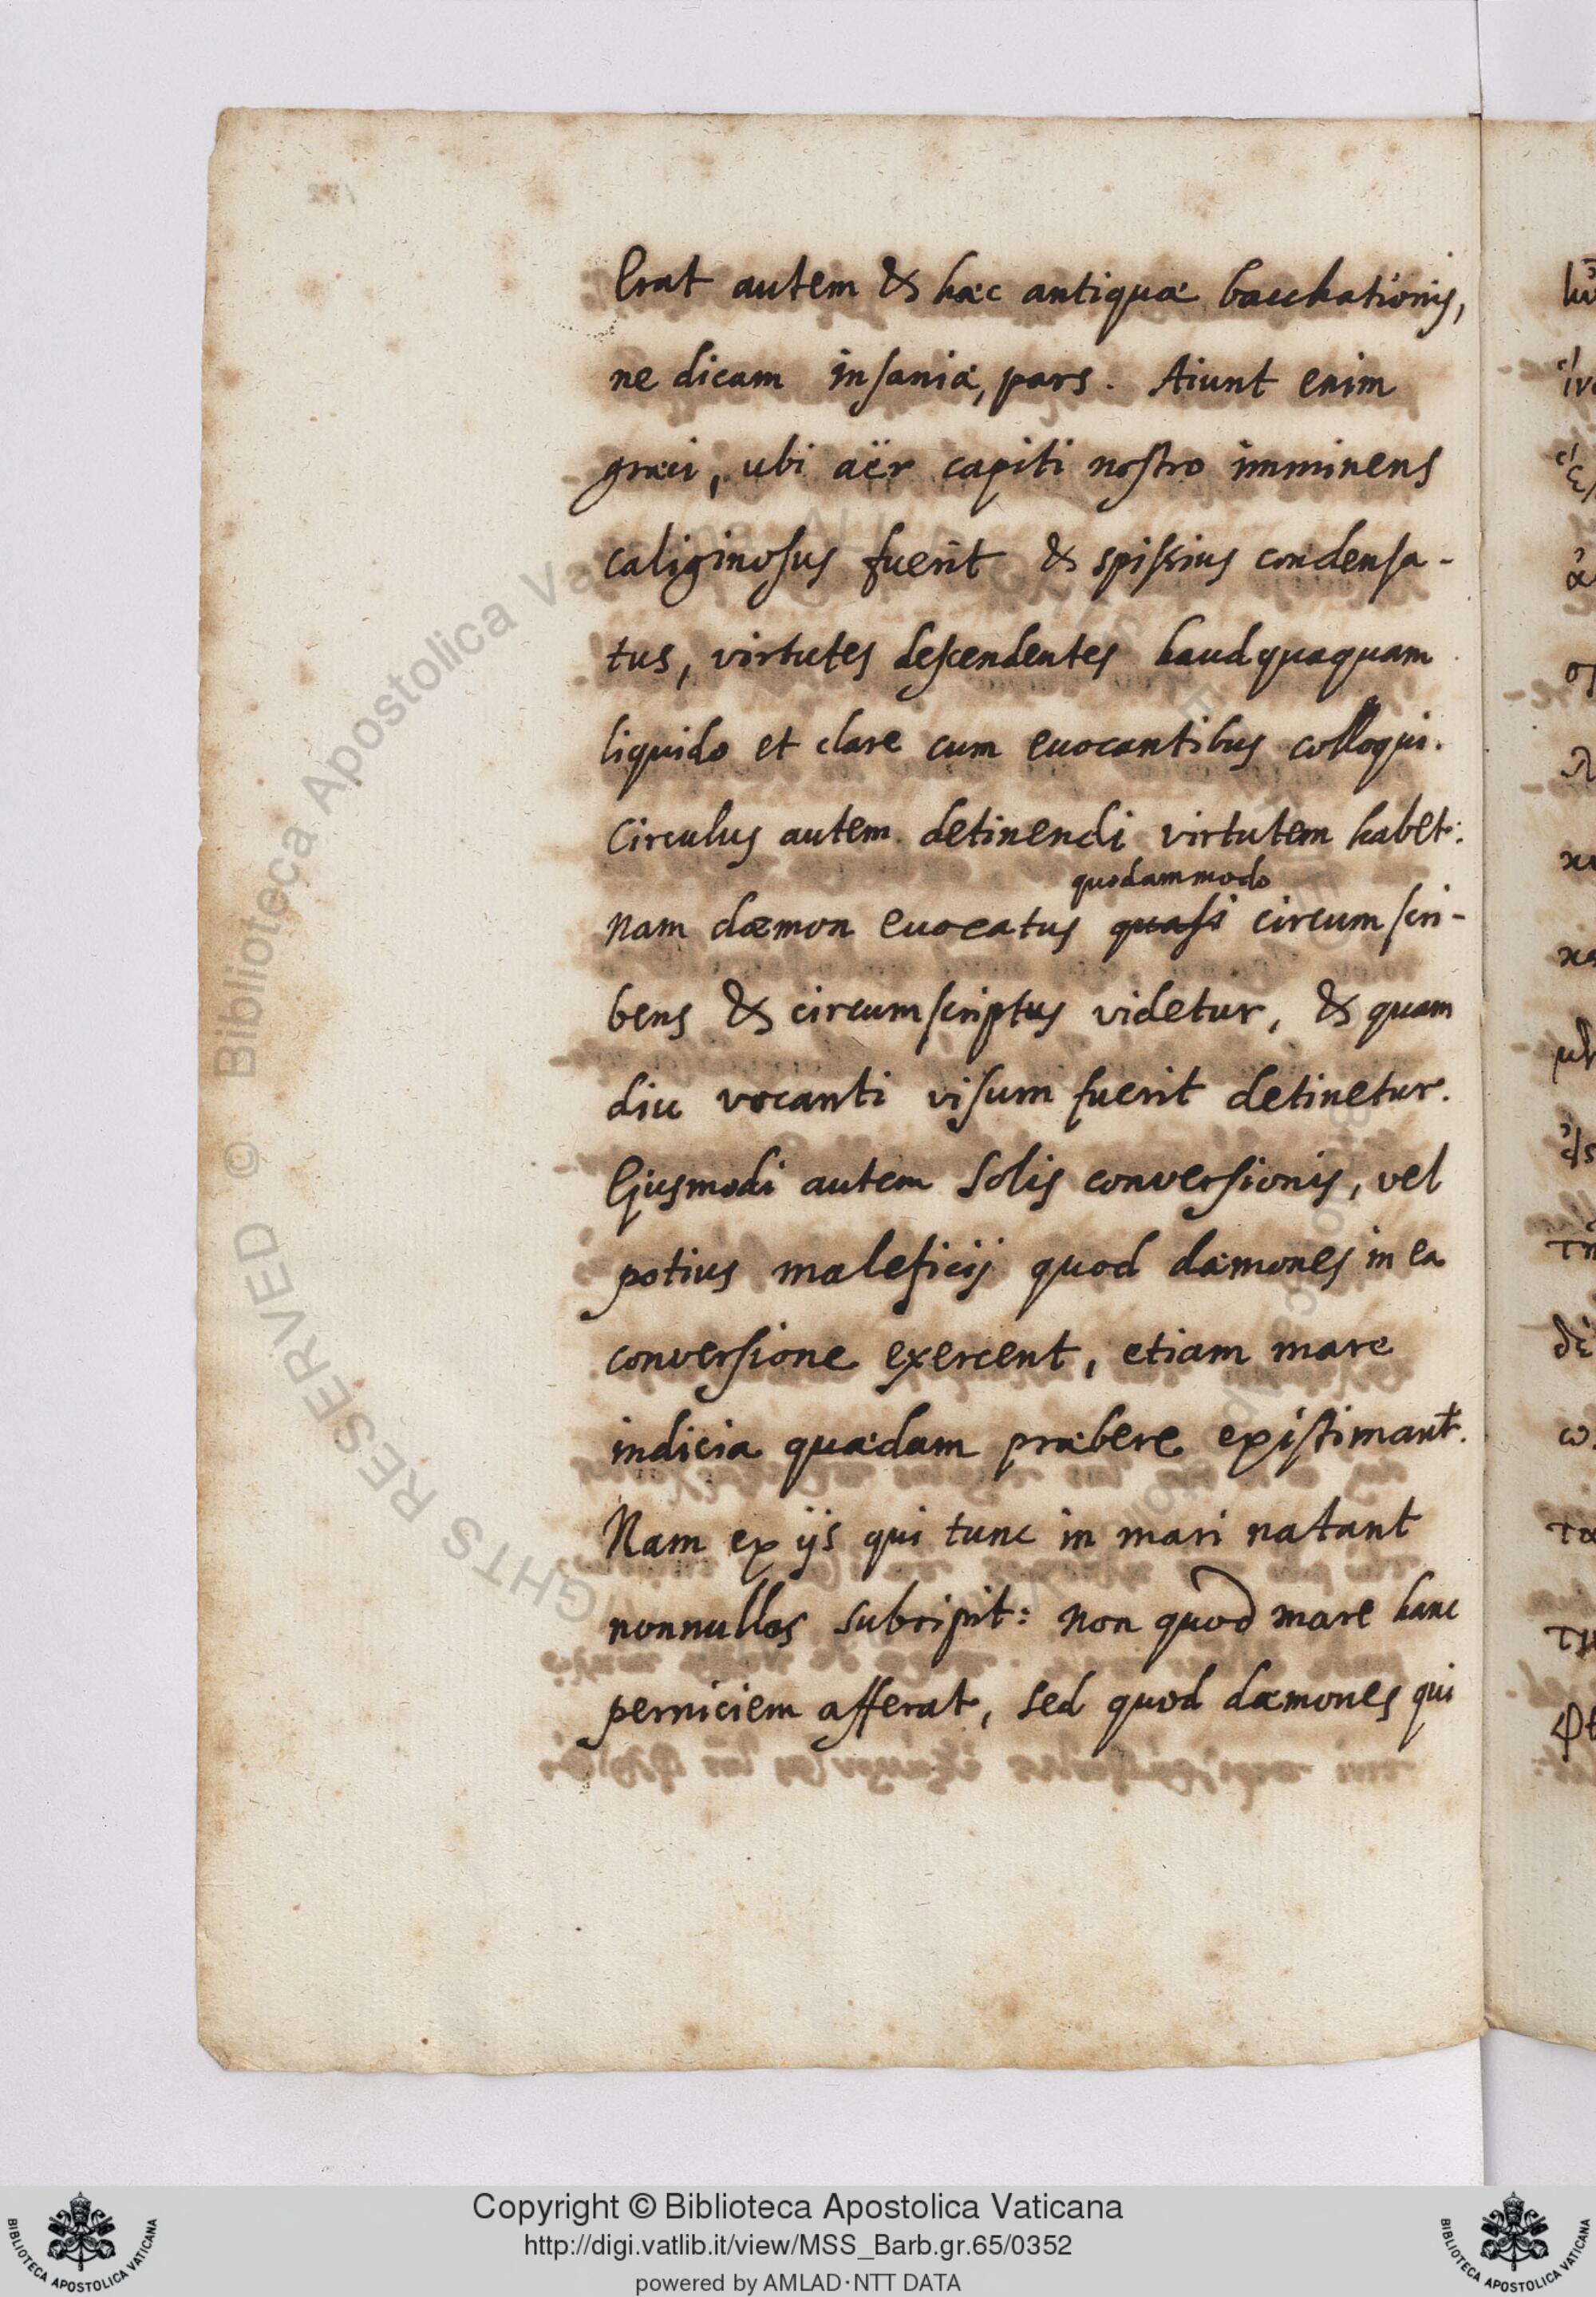 Erat autem & hæc antiquæ bacchationis,
ne dicam insaniæ, pars. Aiunt enim
græci, ubi aër capiti nostro imminens
caliginosus fuerit & spissius condensa-
tus, virtutes descendentes haudquaquam
liquido et clare cum euocantibus colloqui.
Circulus autem detinendi virtutem habet:
quodammodo
nam dæmon euocatus quasi circumscri-
bens & circumscriptus videtur, & quam
diu vocanti visum fuerit detinetur.
Ejusmodi autem Solis conversionis, vel
potius maleficij quod dæmones in ea
conversione exercent, etiam mare
indicia quædam præbere existimant.
Nam ex ijs qui tunc in mari natant
nonnullos subripit: non quod mare hanc
perniciem afferat, sed quod dæmones qui
© Biblioteca Apostolica Vaticana
RIGHTS RESERVED
Copyright © Biblioteca Apostolica Vaticana
http://digi.vatlib.it/view/MSS_Barb.gr.65/0352
powered by AMLAD·NTT DATA
BIBLIOTECA APOSTOLICA VATICANA
BIBLIOTECA APOSTOLICA VATICANA